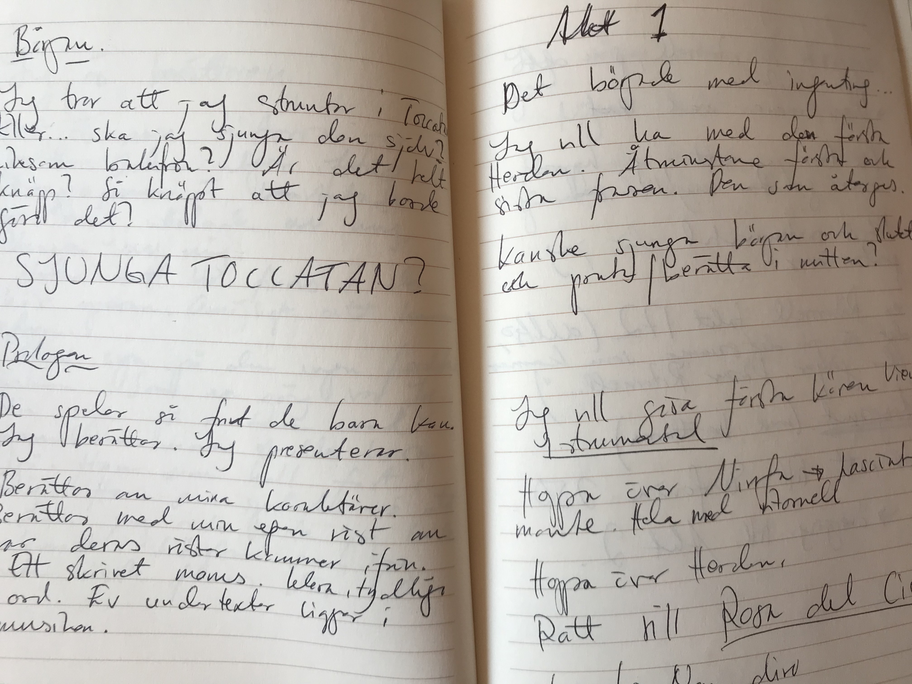 Början.
Jag tror att jag struntar i Toccata
Eller... ska jag sjunga den själv?
liksom bakifrån? Är det helt
knäpp? Så knäppt att jag borde
göra det?
SJUNGA TOCCATAN?
Prologen
De spelar så fint de bara kan.
Jag berättar. Jag presenterar.
Berättar om mina karaktärer.
Berättar med min egen röst om
var deras röster kommer ifrån.
Ett skrivet manus. tydliga
ord. En undertexter ligger i
musiken.
Akt 1
Det började med ingenting...
Jag vill ha med den första
Herden. Åtminstone första och
sista frasen. Den som återges.
Kanske sjunga början och slutet
och prata/berätta i mitten?
Jag vill göra första kören Vieni
Instrumental
Hoppa över Ninfa → Lasciate
monte. Hela med ritornell
Hoppa över Herden.
Rätt till Rosa del Ciel